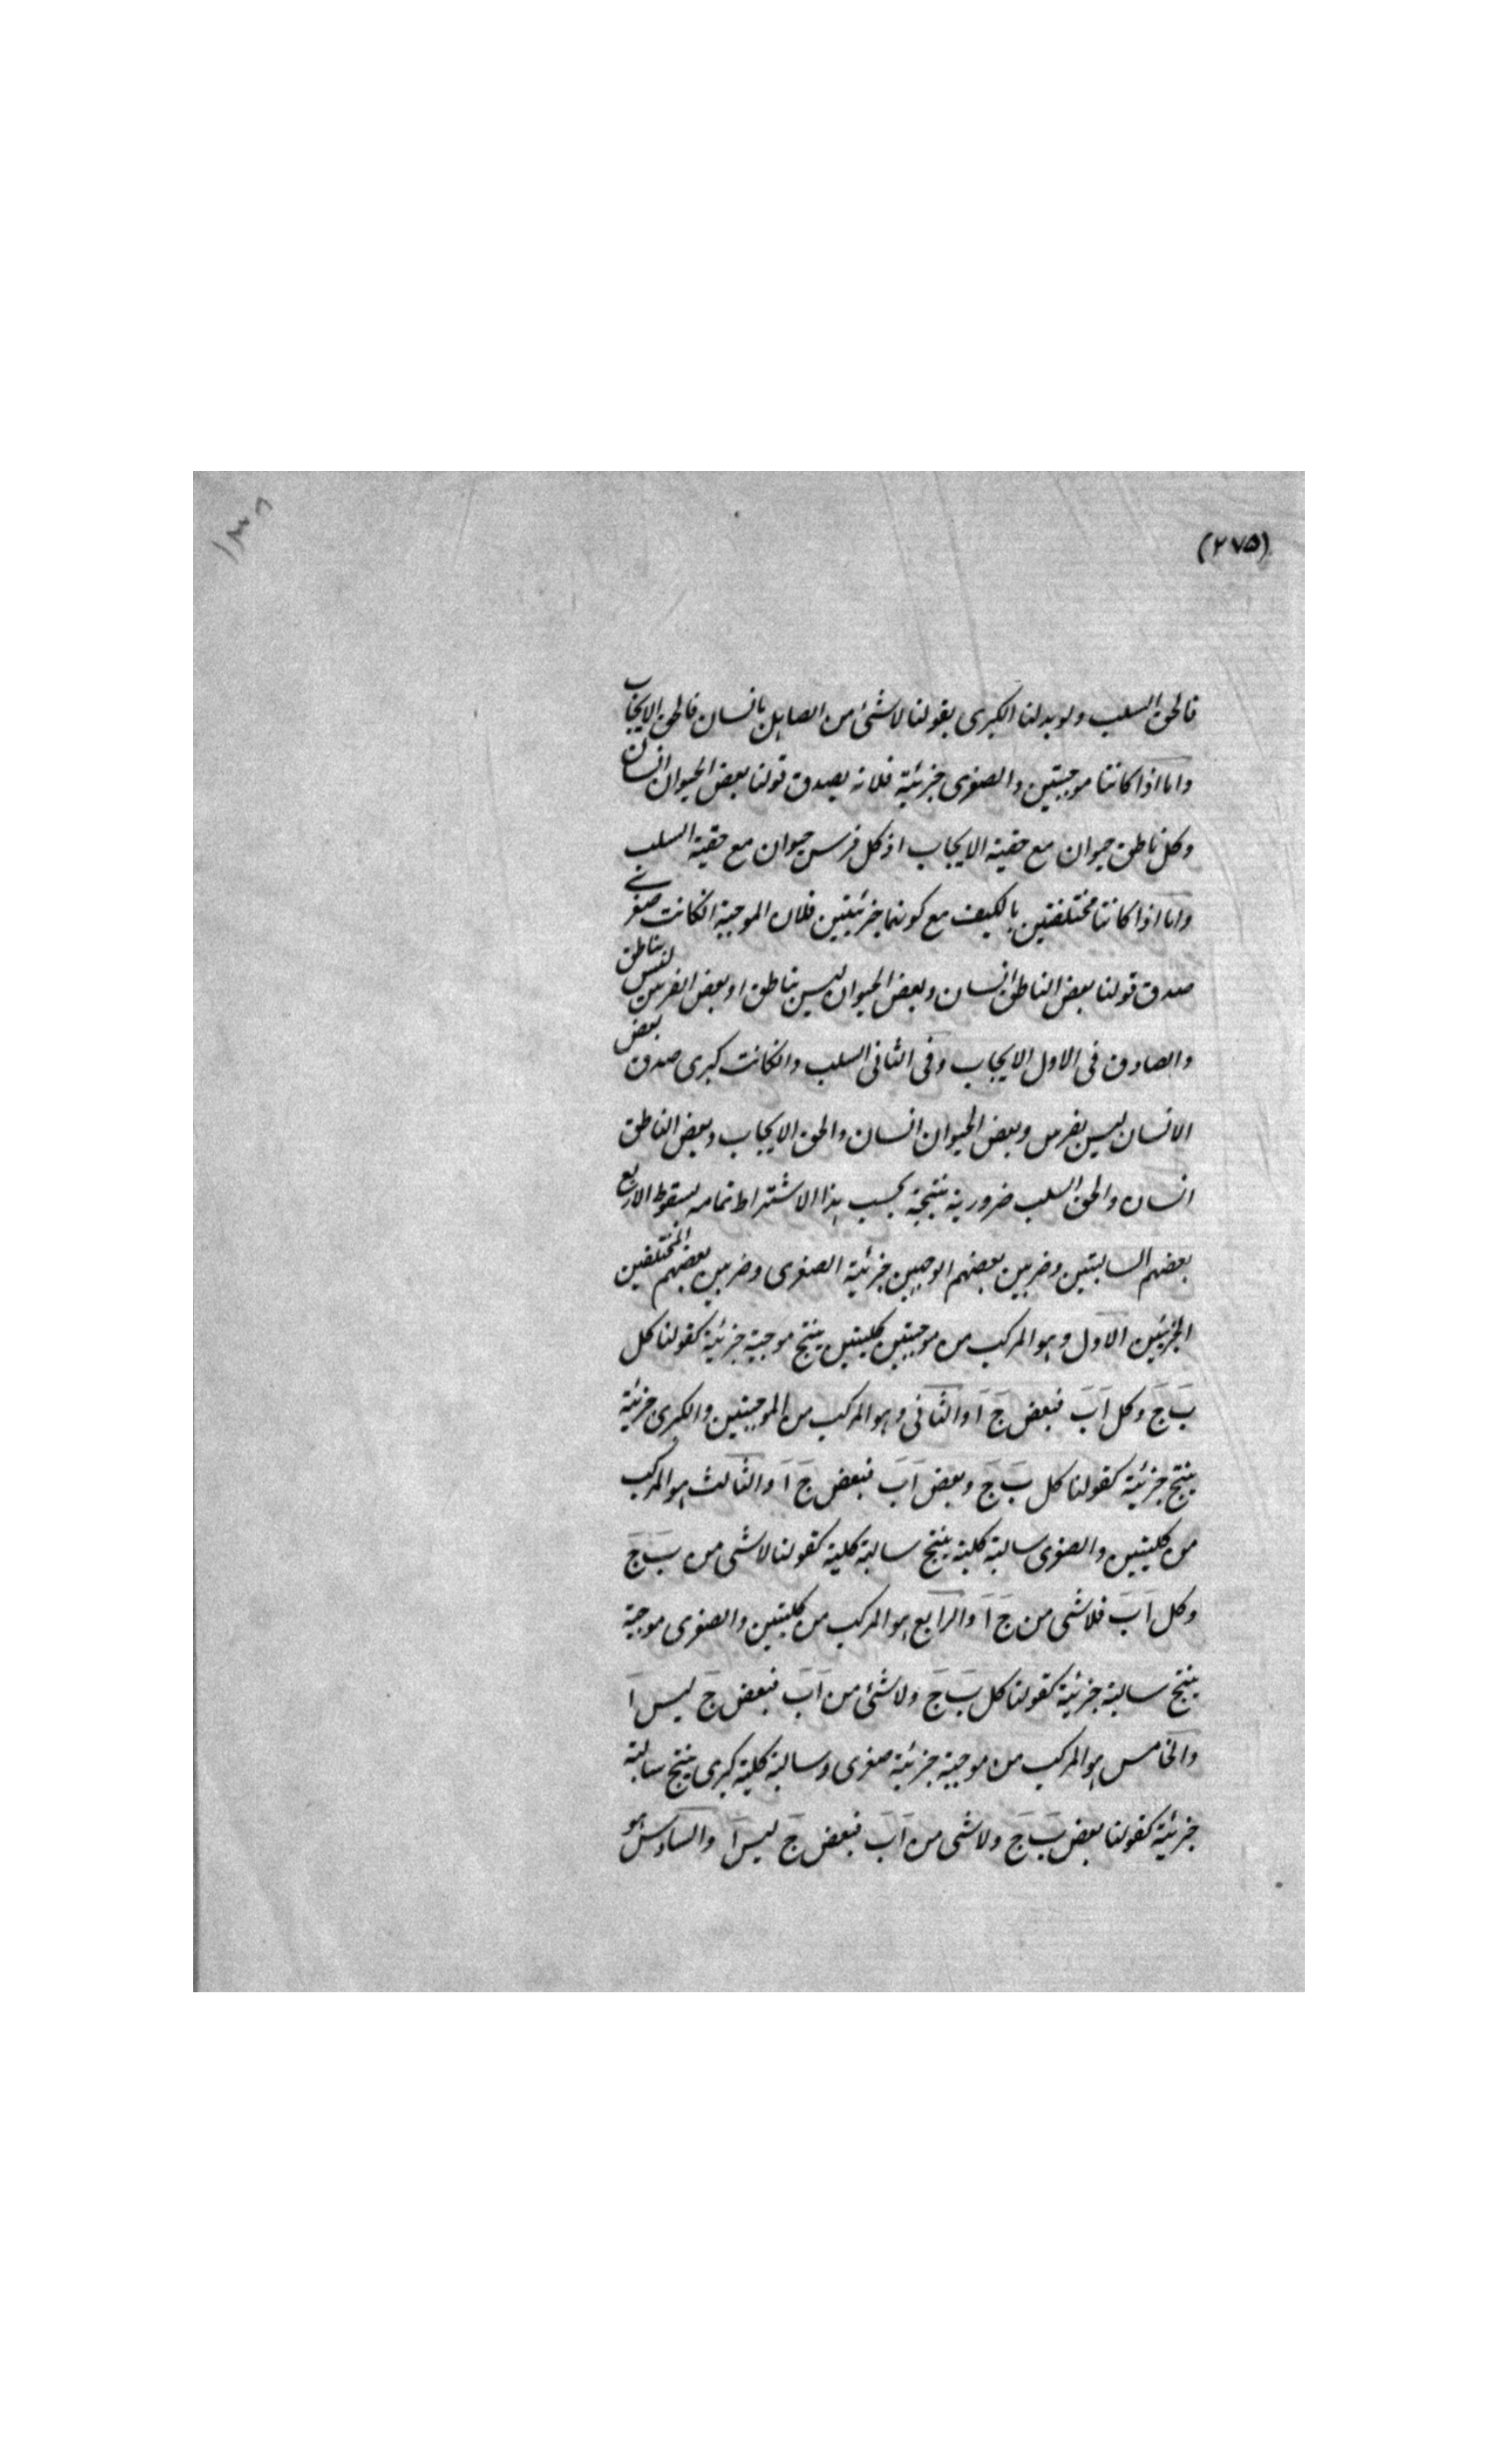 (٢٧٥)
١٣٨
فالحق السلب ولو بدلنا الكبرى بقولنا لا شئ من الصاهل بانسان فالحق الايجاب
واما اذا كانتا موجبتين والصغرى جزئية فلانه يصدق قولنا بعض الحيوان انسان
وكل ناطق حيوان مع حقية الايجاب اذ كل فرس حيوان مع حقية السلب
واما اذا كانتا مختلفتين بالكيف مع كونهما جزئيتين فلان الموجبة انكانت صغرى
صدق قولنا بعض الناطق انسان وبعض الحيوان ليس بناطق او بعض الفرس ليس بناطق
والصادق فى الاول الايجاب وفى الثانى السلب وانكانت كبرى صدق بعض
الانسان ليس بفرس وبعض الحيوان انسان والحق الايجاب وبعض الناطق
انسان والحق السلب ضرورية نتيجة بحسب هذا الاشتراط تمامه لسقوط الاربع
بعضهم السالبتين وضربين بعضهم الوجبين جزئية الصغرى وضربين بعضهم المختلفين
الجزئين الاول وهو المركب من موجبتين كليتين ينتج موجبة جزئية كقولنا كل
ب ج وكل ا ب فبعض ج ا والثانى وهو المركب من الموجبتين والكبرى جزئية
ينتج جزئية كقولنا كل ب ج وبعض ا ب فبعض ج ا والثالث هو المركب
من كليتين والصغرى سالبة كلية ينتج سالبة كلية كقولنا لا شى من ب ج
وكل ا ب فلا شى من ج ا والرابع هو المركب من كليتين والصغرى موجبة
ينتج سالبة جزئية كقولنا كل ب ج ولا شئ من ا ب فبعض ج ليس ا
والخامس هو المركب من موجبة جزئية صغرى وسالبة كلية كبرى ينتج سالبة
جزئية كقولنا بعض ب ج ولا شى من ا ب فبعض ج ليس ا والسادس هو